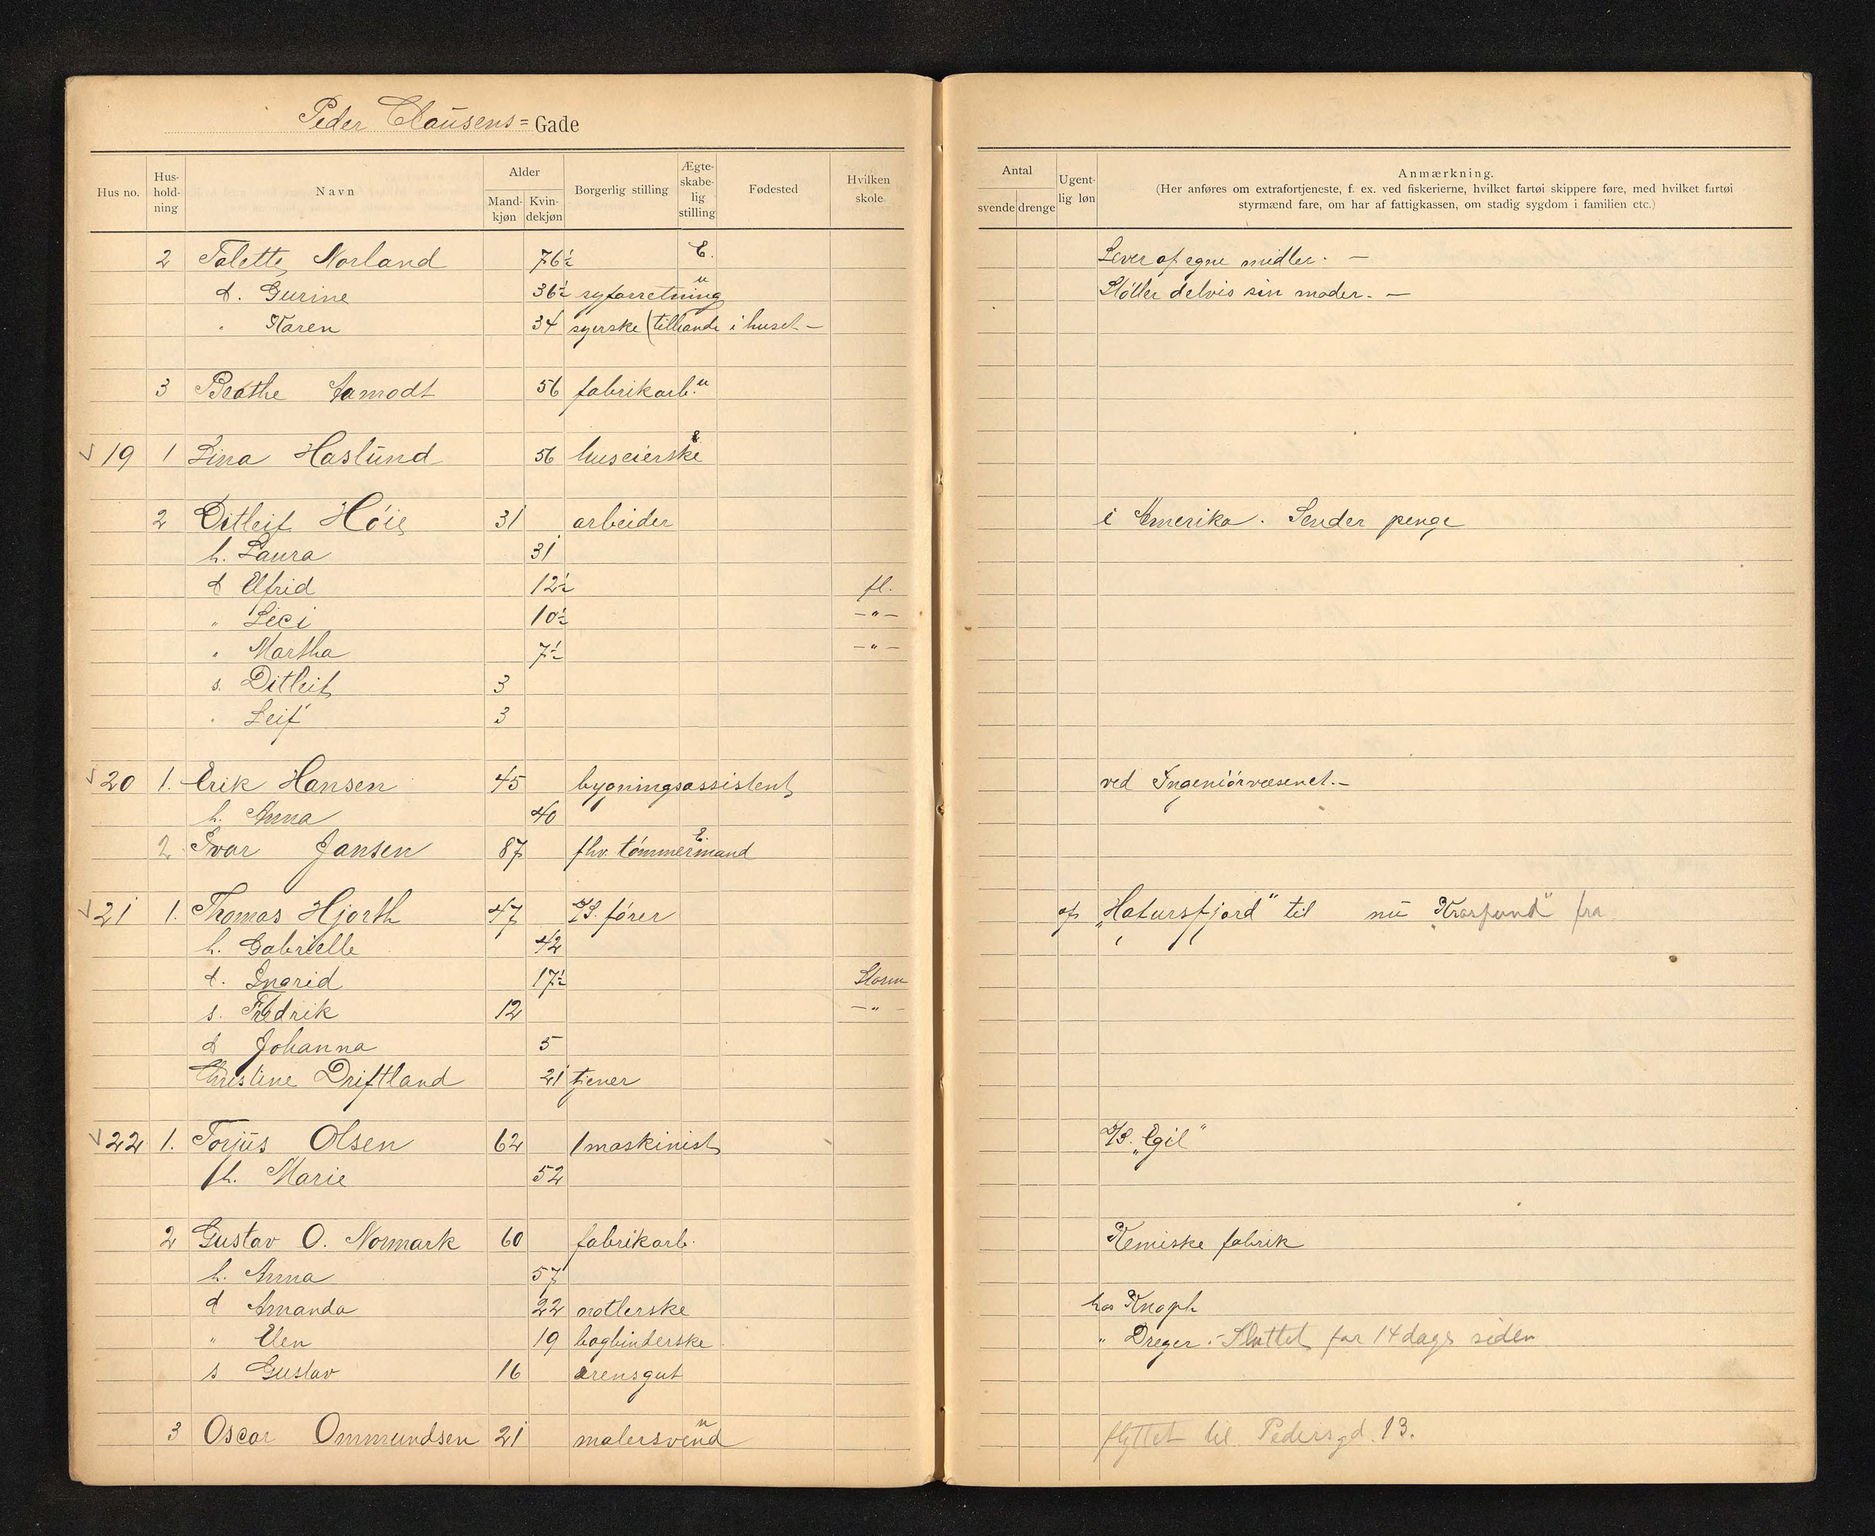 Peder Clausens = Gade
Hus no. Hus-hold-ning Navn Alder Mand-kjøn Kvin-dekjøn Borgerlig stilling Ægte-skabe-lig stilling Fødested Hvilken skole Antal svende drenge Ugent-lig løn Anmærkning.
(Her anføres om extrafortjeneste, f. ex. ved fiskerierne, hvilket fartøi skippere føre, med hvilket fartøi
styrmænd fare, om har af fattigkassen, om stadig sygdom i familien etc.)
2 Talette Norland 76½ E. Lever af egne midler. —
d. Gurine 36½ syforretning u Støtter delvis sin moder. —
" Karen 34 syerske (tilhaande i huset —
3 Beathe Aamodt 56 fabrikarb. u
√ 19 1 Lina Haslund 56 huseierske E
2 Ditleif Høie 31 arbeider i Amerika. Sender penge
h. Laura 31
d Elfrid 12½ fl.
" Sici 10½ — " —
" Martha 7½ — " —
s. Ditleif 3
" Leif 3
√ 20 1. Erik Hansen 45 bygningsassistent ved Ingeniørvæsenet. —
h. Anna 40
2. Ivar Jansen 87 fhv. tømmermand E.
√ 21 1. Thomas Hjorth 47 D/S. fører af "Hafursfjord" til nu "Karsund" fra
h. Gabrielle 42
d. Ingrid 17½ Storm
s. Fredrik 12 — " —
d Johanna 5
Christine Driftland 21 tjener
√ 22 1. Torjus Olsen 62 1 maskinist D/S. "Egil"
h. Marie 52
2 Gustav O. Normark 60 fabrikarb. Kemiske fabrik
h. Anna 57
d Amanda 22 notlerske hos Knoph
" Elen 19 bogbinderske " Dreyer. — Sluttet for 14 dage siden
s Gustav 16 ærensgut
3 Oscar Ommundsen 21 malersvend u flyttet til Pedersgd. 13.